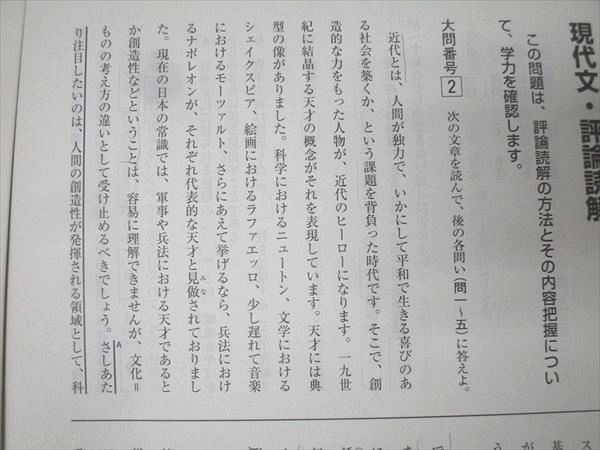 現代文・評論読解
この問題は、評論読解の方法とその内容把握につい
て、学力を確認します。
大問番号 2 次の文章を読んで、後の各問い(問一〜五)に答えよ。
近代とは、人間が独力で、いかにして平和で生きる喜びのあ
る社会を築くか、という課題を背負った時代です。そこで、創
造的な力をもった人物が、近代のヒーローになります。一九世
紀に結晶する天才の概念がそれを表現しています。天才には典
型の像がありました。科学におけるニュートン、文学における
シェイクスピア、絵画におけるラファエッロ、少し遅れて音楽
におけるモーツァルト、さらにあえて挙げるなら、兵法におけ
るナポレオンが、それぞれ代表的な天才と見做されておりまし
みな
た。現在の日本の常識では、軍事や兵法における天才であると
か創造性などということは、容易に理解できませんが、文化=
ものの考え方の違いとして受け止めるべきでしょう。さしあた
A
り注目したいのは、人間の創造性が発揮される領域として、科